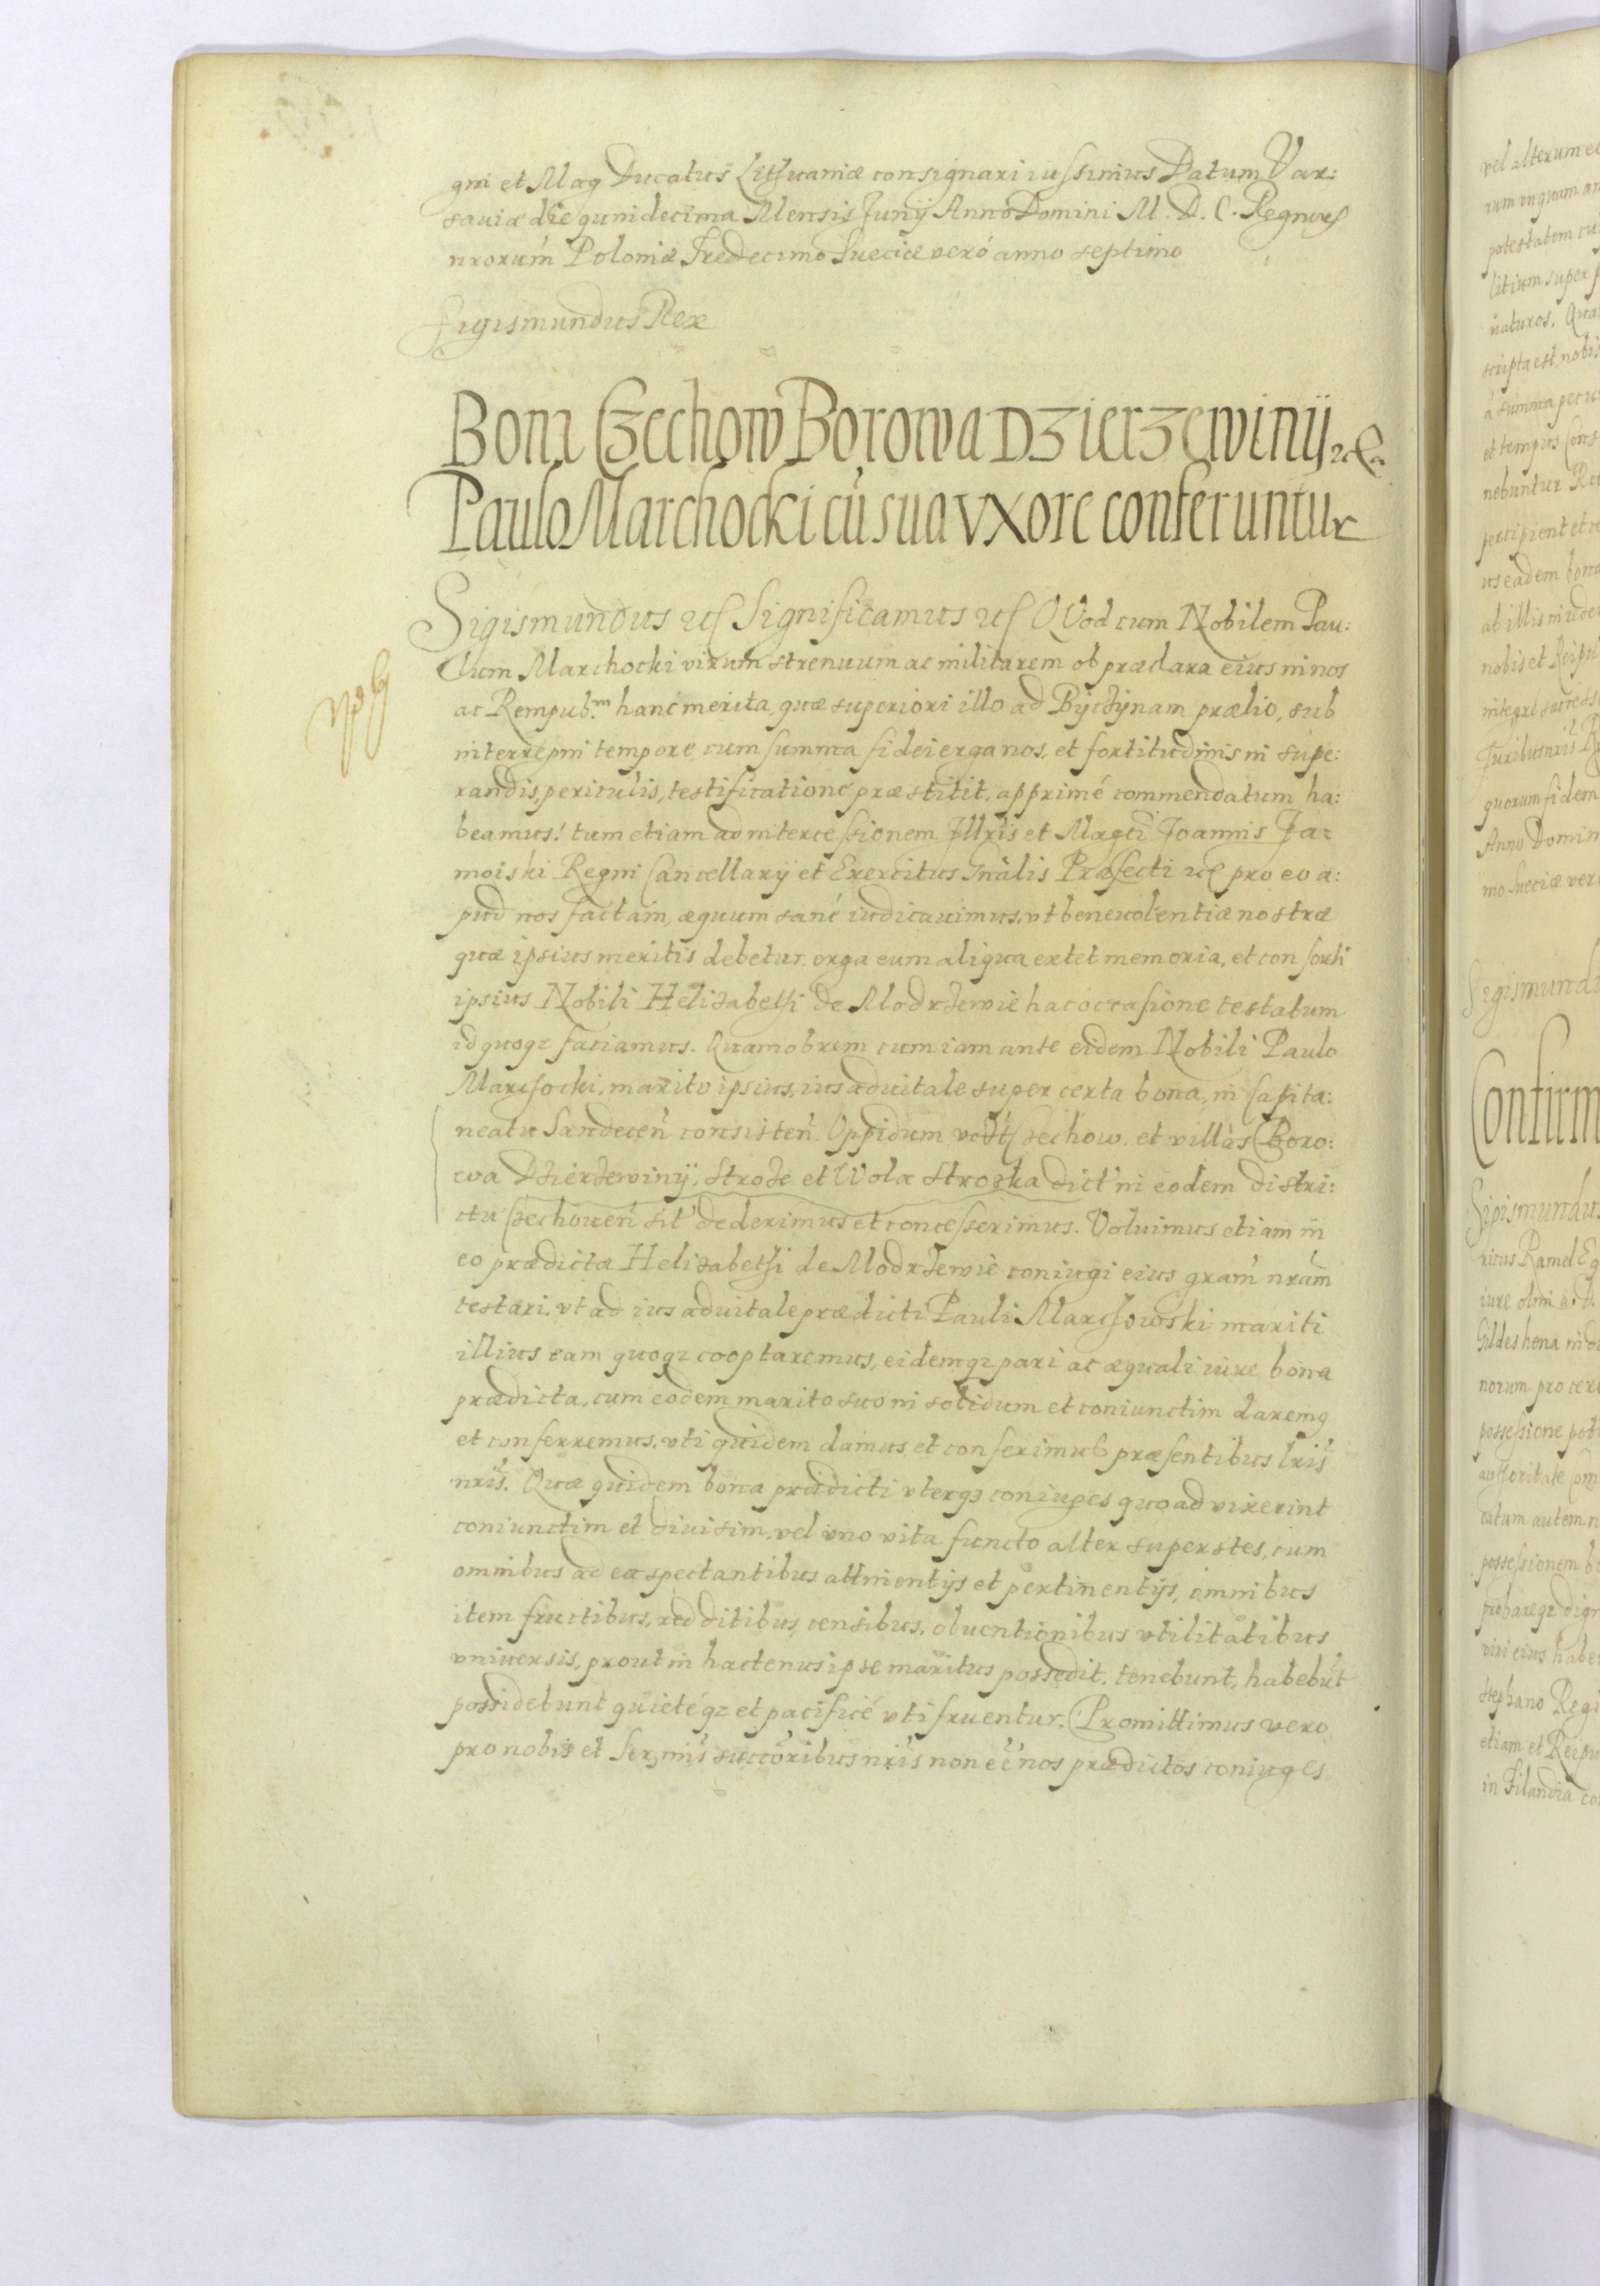 gni et Mag Ducatus Lithuaniæ consignari iussimus Datum Var:
saviæ die quindecima Mensis Junij Anno Domini M. D. C. Regnorꝝ
nrorum Poloniæ Tredecimo Sueciæ veró anno septimo
Sigismundus Rex
Bona Czechow Borowa Dzierzewinij etc.
Paulo Marchocki cū sua vxore conferuntur
Sigismundus etc Significamus etc QVod cum Nobilem Pau:
lum Marchocki virum strenuum ac militarem ob præclara eius in nos
ac Rempub.m hanc merita, quæ superiori illo ad Byczynam prælio, sub
interregni tempore cum summa fidei erga nos, et fortitudinis in supe:
randis, periculis, testificatione præstitit, apprimé commendatum ha:
beamus: tum etiam ad intercessionem Illris et Magci Joannis Za:
moiski Regni Cancellarij et Exercitus Gnalis Præfecti etc pro eo a:
pud nos factam, æquum sané iudicauimus, vt beneuolentiæ nostræ
quæ ipsius meritis debetur erga eum aliqua extet memoria, et consorti
ipsius Nobili Helizabethi de Modrzewie hac occasione testatum
id quoqz faciamus. Quamobrem cum iam ante eidem Nobili Paulo
Marchocki, marito ipsius, ius aduitale super certa bona, in Capita:
neatu Sandecen consisten. Oppidum vcdt Czechow, et villas Boro:
wa Dzierzewinij, Stroze et Wola Strozka dict in eodem distri:
ctu Czechouen sit dederimus et concesserimus. Voluimus etiam in
eo prædictæ Helizabethi de Modrzewie coniugi eius gram nram
testari, vt ad ius aduitale prædicti Pauli Marchowski mariti
illius eam quoqz cooptaremus, eidemqz pari ac æquali iure bona
prædicta, cum eodem marito suo in solidum et coniunctim daremꝰ
et conferremus, vti quidem damus et conferimus præsentibus lris
nris. Quæ quidem bona prædicti vterqz coniuges quoad vixerint
coniunctim et diuisim, vel vno vita functo alter superstes, cum
omnibus ad ea spectantibus attinentijs et pertinentijs, omnibus
item fructibus, redditibus, censibus, obuentionibus vtilitatibus
vniuersis, prout in hactenus ipse maritus possedit, tenebunt, habebūt
possidebunt quietéqz et pacificé vti fruentur. Promittimus vero
pro nobis et Sermis succoribus nris non eē nos prædictos coniuges